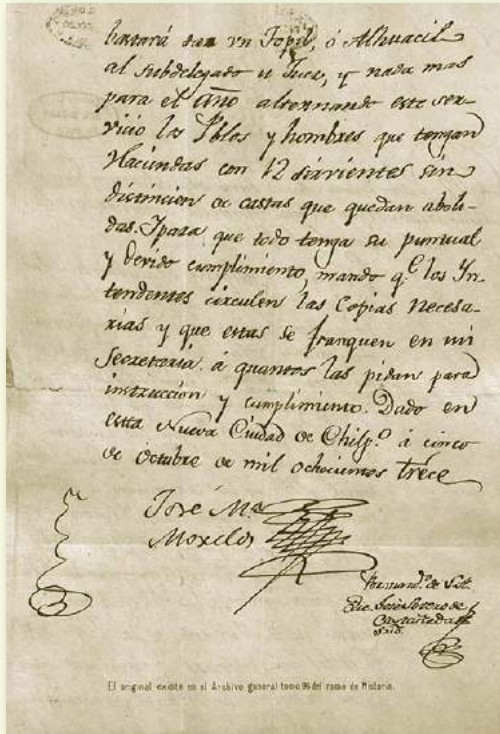 bastará dar un Topil, ó Alhuacil
al subdelegado u Juez, y nada mas
para el año alternando este ser-
vicio los Pblos y hombres que tengan
Haciendas con 12 sirvientes sin
distincion de castas que quedan aboli-
das. Ypara que todo tenga su puntual
y devido cumplimiento, mando q.e los In-
tendentes circulen las Copias necesa-
rias y que estas se franquen en mi
Secretaria á quantos las pidan para
instruccion y cumplimiento. Dado en
esta Nueva Ciudad de Chilp.o á cinco
de Octubre de mil ochocientos trece
José M.a
Morelos
de S.A.
Lic. José Sotero de
Castañeda
Srio.
El original existe en el Archivo general tomo 96 del ramo de Historia.